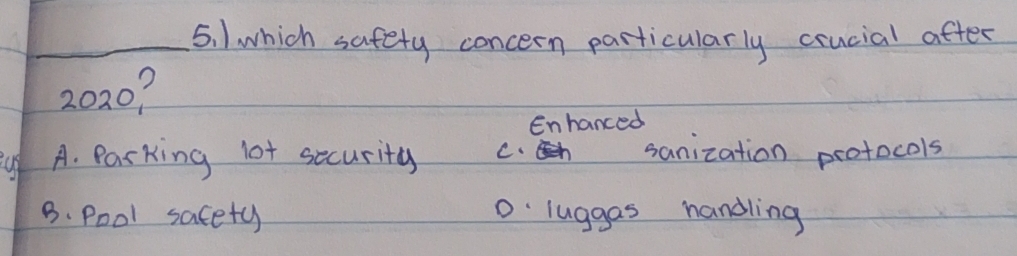 5.) which safety concern particularly crucial after
2020?
A. Parking lot security
C. Enhanced sanization protocols
B. Pool safety
D. luggas handling